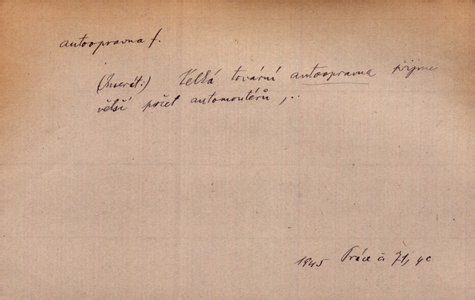 autoopravna f.
(Inserát.) Velká tovární autoopravna přijme
větší počet automontérů, ..
1945 Práce č.